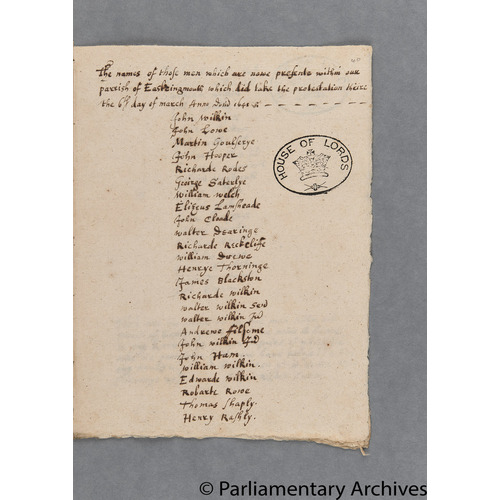 The names of those men which are nowe presente within our
parish of Eastteingmouth which did take the protestation there
the 6th day of march Anno Domi 1641
John Wilkin
John Lowe
Martin Goulserye
John Hooper
Richarde Rodes
George Saterlye
William Welch
Elizeus Lamsheade
John Cloade
walter Dearinge
Richarde Rieckclife
William Drewe
Henrye Thorninge
James Blackston
Richarde wilkin
walter wilkin Sen
walter wilkin Ju
Andrewe filsome
John wilkin Ju
John Ham.
William wilkin.
Edwarde wilkin
Robarte Rowe
Thomas Shaply.
Henry Rashly.
HOUSE OF LORDS
© Parliamentary Archives